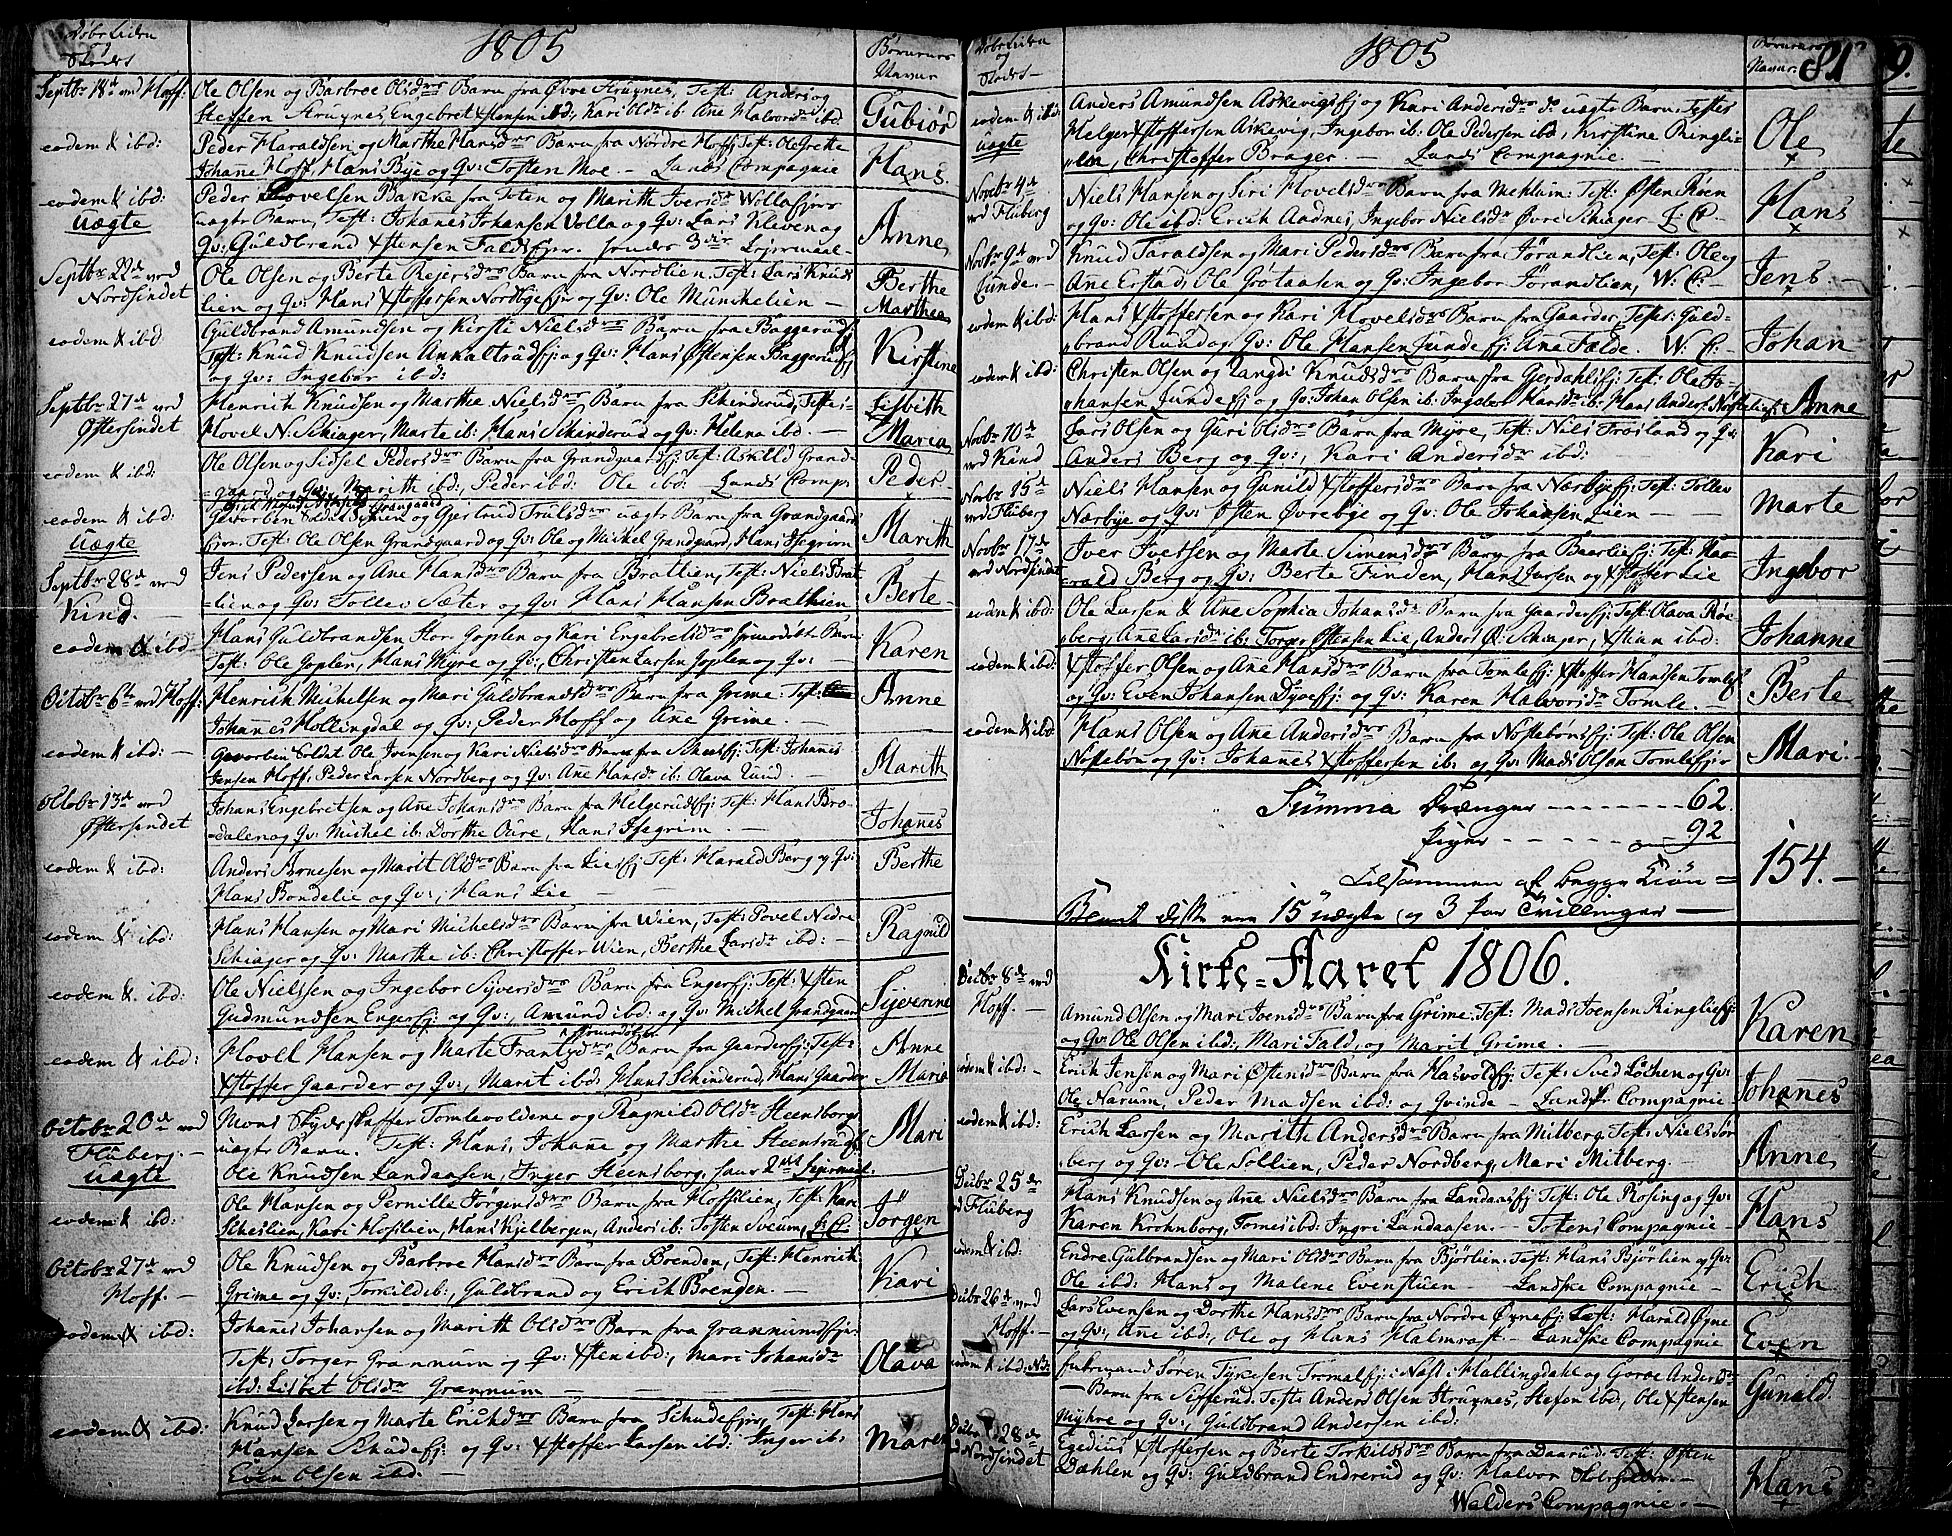 Døbe Tiden
og
Stedet
1805
Børnenes
Navne
Septbr 18de ved Hoff.
Ole Olsen og Barbroe Olsdr Barn fra Øvre Struxnes, Test: Anders og
Steffen Struxnes, Engebret Xstensen ibd:, Kari Olsdr ib: Ane Halvorsdr ibd
Gubiør
eodem & ibd:
Peder Haraldsen og Marthe Hansdr Barn fra Nordre Hoff, Test: Ole Grette
Johane Hoff, Hans Bye og Qv: Tosten Moe. - Lands Compagnie
Hans
eodem & ibd:
Uægte
Peder Povelsen Bakke fra Toten og Marith Iversdr Wollaejer
uægte Barn, Test: Johanes Johansen Volla og Qv: Lars Kleven og
Qv: Guldbrand Xstensen Falds Ejer.
Anne
Septbr 22de ved
Nordsindet
Ole Olsen og Berte Rejersdr Barn fra Nordlien. Test: Lars Knuds
lien og Qv: Hans Xstoffersen Nordbyeejer og Qv: Ole Munchelien -
Berthe
Marthea
eodem & ibd
Guldbrand Amundsen og Kirsti Nielsdr Barn fra Baggerud
Test: Knud Knudsen Ankaltrudej: og Qv: Hans Østensen Baggerudej
og Qv: Ingebor ibd:
Kirstine
Septbr 27de ved
Østersindet
Henrich Knudsen og Marthe Nielsdr Barn fra Schinderud, Teste:
Hovel N: Schiager, Marte ib: Hans Schinderud og Qv: Helena ibd: -
Lisbith
Maria
eodem & ibd:
Ole Olsen og Sidsel Pedersdr Barn fra Grandgaardsej: Test: Askild Grand-
gaard og Qv: Marith ibd:, Peder ibd: Ole ibd: - Lands Comp:
Peder
eodem & ibd:
Uægte
Geworben Soldat og Giertrud Trulsdr uægte Barn fra Grandgaards
Ejer. Test: Ole Olsen Grandgaard og Qv: Ole og Michel Grandgaard, Hans Isegrim
Marith
Septbr 28de ved
Kind. -
Jens Pedersen og Ane Hansdr Barn fra Bratlien, Test: Niels Brat
lien og Qv: Tollev Sæter og Qv: Hans Hansen Brathlien
Berte
eodem & ibd
Hans Guldbrandsen Stor Goplen og Kari Engebretsdr hjemedøbt Barn
Test: Ole Goplen, Hans Myre og Qv:, Christen Larsen Goplen og Qv: -
Karen
Octobr 6te ved Hoff:
Henrich Michelsen og Mari Guldbrandsdr Barn fra Grime: Test:
Johannes Hollingdal og Qv:, Peder Hoff og Ane Grime. -
Anne
eodem & ibd: -
Geworben Soldat Ole Ivensen og Kari Nielsdr Barn fra Test: Johanes
Jensen Hoff, Peder Larsen Nordberg og Qv: Ane Hansdr ib: Olava Lund. -
Marith
Octobr 13de ved
Østersindet
Johans Engebretsen og Ane Johansdr Barn fra Helgerudsej: Test: Hans Bro-
dalen og Qv: Michel ib: Dorthe Oure, Hans Isegrim. -
Johanes
eodem & ibd:
Anders Arnesen og Marit Olsdr Barn fra Liesej: Test: Harald Berg og Qv:
Hans Bondelie og Qv:, Hans Lie -
Berthe
eodem & ibd:
Hans Hansen og Mari Michelsdr Barn fra Wien, Test: Povel Nedre
Schiager og Qv: Marthe ib: Christoffer Wien, Berthe Larsdr ibd: -
Ragnild
eodem &. ibd:
Ole Nielssen og Ingebor Syversdr Barn fra Engerej: Test: Xsten
Gudmundsen Engerej: og Qv:, Amund ibd: og Qv: Michel Grandgaard
Syverine
eodem & ibd:
Hovel Hansen og Marte Frantzdr hjemedøbt Barn fra Gaardersej: Test:
Xstoffer Gaarder og Qv:, Marit ibd: Hans Schinderud, Hans Gaarder
Anne
Maria
Octobr 20de ved
Fluberg. -
Uægte
Mons Skydsskaffer Tomlevoldene og Ragnild Olsdr Steensborg
uægte Barn. Test: Hans, Johane og Marthe Steensrudej
Ole Knudsen Landaasen, Inger Steensborg,
Mari
eodem & ibd:
Ole Hansen og Pernille Jørgensdr Barn fra Hofslien, Test: Kari
Scheslien, Kari Hofslien, Hans Kjelbergen, Anders ib: Tosten Sveum, L: C:
Jørgen
Octobr 27de ved
Hoff. -
Ole Knudsen og Barbroe Hansdr Barn fra Brenden, Test: Henrich
Grime og Qv:, Torkild ib:, Guldbrand og Erich Brenden. -
Kari
eodem & ibd:
Johanes Johansen og Marith Olsdr Barn fra Grannumsejer
Test: Torger Grannum og Qv: Xsten ibd:, Mari Johansdr
ibd: Lisbet Olsdr Grannum -
Olava
eodem & ibd:
Knud Larsen og Marte Erichsdr Barn fra Schudeejer, Test: Hans
Hansen Skudeej: og Qv: Xstoffer Larsen ibd: Inger ib:
Even Olsen ibd: -
Maren
Døbe Tiden
og
Stedet -
1805
Børnenes
Navne.
81
eodem & ibd:
Uægte
Anders Amundsen Askevigsej og Kari Andersdr uægte Barn. Testes
Helge Xstoffersen Askevig, Ingebor ib: Ole Pedersen ibd, Kirstine Ringli-
en, Christoffer Brager. - Lands Compagnie. -
Ole
Novbr 4de
ved Fluberg
Niels Hansen og Siri Hovelsdr Barn fra Mehlum: Test: Østen Roen
og Qv: Ole ibd: Erich Andnes, Ingebor Nielsdr Øvre Schiager L: C: -
Hans
Novbr 9de ved
Lunde -
Knud Taraldsen og Mari Pedersdr Barn fra Jørandlien, Test: Ole og
Ane Erstad, Ole Grøtaasen og Qv: Ingebor Jørandlien, W: C: -
Jens. -
eodem & ibd:
Hans Xstoffersen og Kari Hovelsdr Barn fra Gaarder, Testes: Guld-
brand Ruud og Qv: Ole Hansen Lundeej: Ane Falde. W: C: -
Johan
eodem & ibd:
Christen Olsen og Langdi Knudsdr Barn fra Gerdahlsej: Test: Ole Jo-
hansen Lundeej og Qv: Johan Olsen ib: Ingebor Hansdr ib: Hans Anders:
Anne
Novbr 10de
ved Kind
Lars Olsen og Guri Olsdr Barn fra Myre, Test: Niels Trøsland og Qv:
Anders Berg og Qv:, Kari Andersdr ibd:
Kari
Novbr 15de
ved Fluberg
Niels Hansen og Gunild Xstoffersdr Barn fra Nærbyeej: Test: Tollev
Nærbye og Qv: Østen Øvrebye og Qv: Ole Johansen Lien -
Marte
Novbr 17de
ved Nordsindet
Iver Iversen og Marte Simensdr Barn fra Baarlieej: Test: Har-
rald Berg og Qv: Berte Finden, Hans Larsen og Xstoffer Lie
Ingebor
eodem & ibd:
Ole Larsen & Ane Sophia Johansdr Barn fra Gaardersej: Test: Olava Røe-
berg, Ane Larsdr ib: Torger Østensen Lie, Anders Ø: Schiager, Xstian ibd:
Johanne
eodem & ibd:
Xstoffer Olsen og Ane Hansdr Barn fra Tomleej: Xstoffer Hansen Tomleej
og Qv: Even Johansen Dyeej: og Qv: Karen Halvorsdr Tomle. -
Berte
eodem & ibd:
Hans Olsen og Ane Andersdr Barn fra Nøstebønsej: Test: Ole Olsen
Nøstebøn og Qv: Johanes Xstoffersen ib: og Qv: Mads Olsen Tomleejer
Mari. -
Summa Drænger - - - - 62.
Piger - - - - 92
Tilsammen af begge Kiøn =
154. -
Blant disse var 15 uægte og 3 Par Tvillinger -
Kirke-Aaret 1806.
Decbr 8de ved
Hoff. -
Amund Olsen og Mari Joensdr Barn fra Grime. Test: Mads Joensen Ringlieej:
og Qv: Ole Olsen ibd:, Mari Fald, og Marit Grime. -
Karen
eodem & ibd: -
Erich Jensen og Mari Østensdr Barn fra Hasvoldej: Test: Sved Løchen og Qv:
Ole Narum, Peder Madsen ibd: og Qvinde - Landske Compagnie
Johanes
eodem & ibd:
Erich Larsen og Marith Andersdr Barn fra Mitberg. Test: Niels Sør
berg og Qv: Ole Sollien, Peder Nordberg, Mari Mitberg. -
Anne
Decbr 25de
ved Fluberg
Hans Knudsen og Ane Nielsdr Barn fra Landaasej: Test: Ole Rosing og Qv:
Karen Krohnborg, Tomes ibd: Ingri Landaasen. - Totens Compagnie -
Hans
eodem & ibd:
Endre Gulbrandsen og Mari Olsdr Barn fra Bjørlien. Test: Hans Bjørlien og Qv:
Ole ibd: Hans og Malene Evenstuen - Landske Compagnie -
Erich
Decbr 26de ved
Hoff. -
Lars Evensen og Dorthe Hansdr Barn fra Nordre Øyneej: Test: Harald Øyne
og Qv:, Ane ibd:, Ole og Hans Halmrast. - Landske Compagnie
Even
eodem & ibd: Nd:
fuhrmand Søren Tykesen Tromalej: i Næst: Hallingdahl og Goroe Andersdr
- Barn fra Sifferud. Test: Anders Olsen Struxnes, Steffen ibd:, Ole Xstensen
Myhre og Qv:, Guldbrand Andersen ibd:
Gunild.
Decbr 28de
ved Nordsindet
Egedius Xstoffersen og Berte Torkildsdr Barn fra Daarud: Test: Østen
Dæhlen og Qv: Guldbrand Endrerud og Qv: Halvor
Walders Compagnie. -
Hans